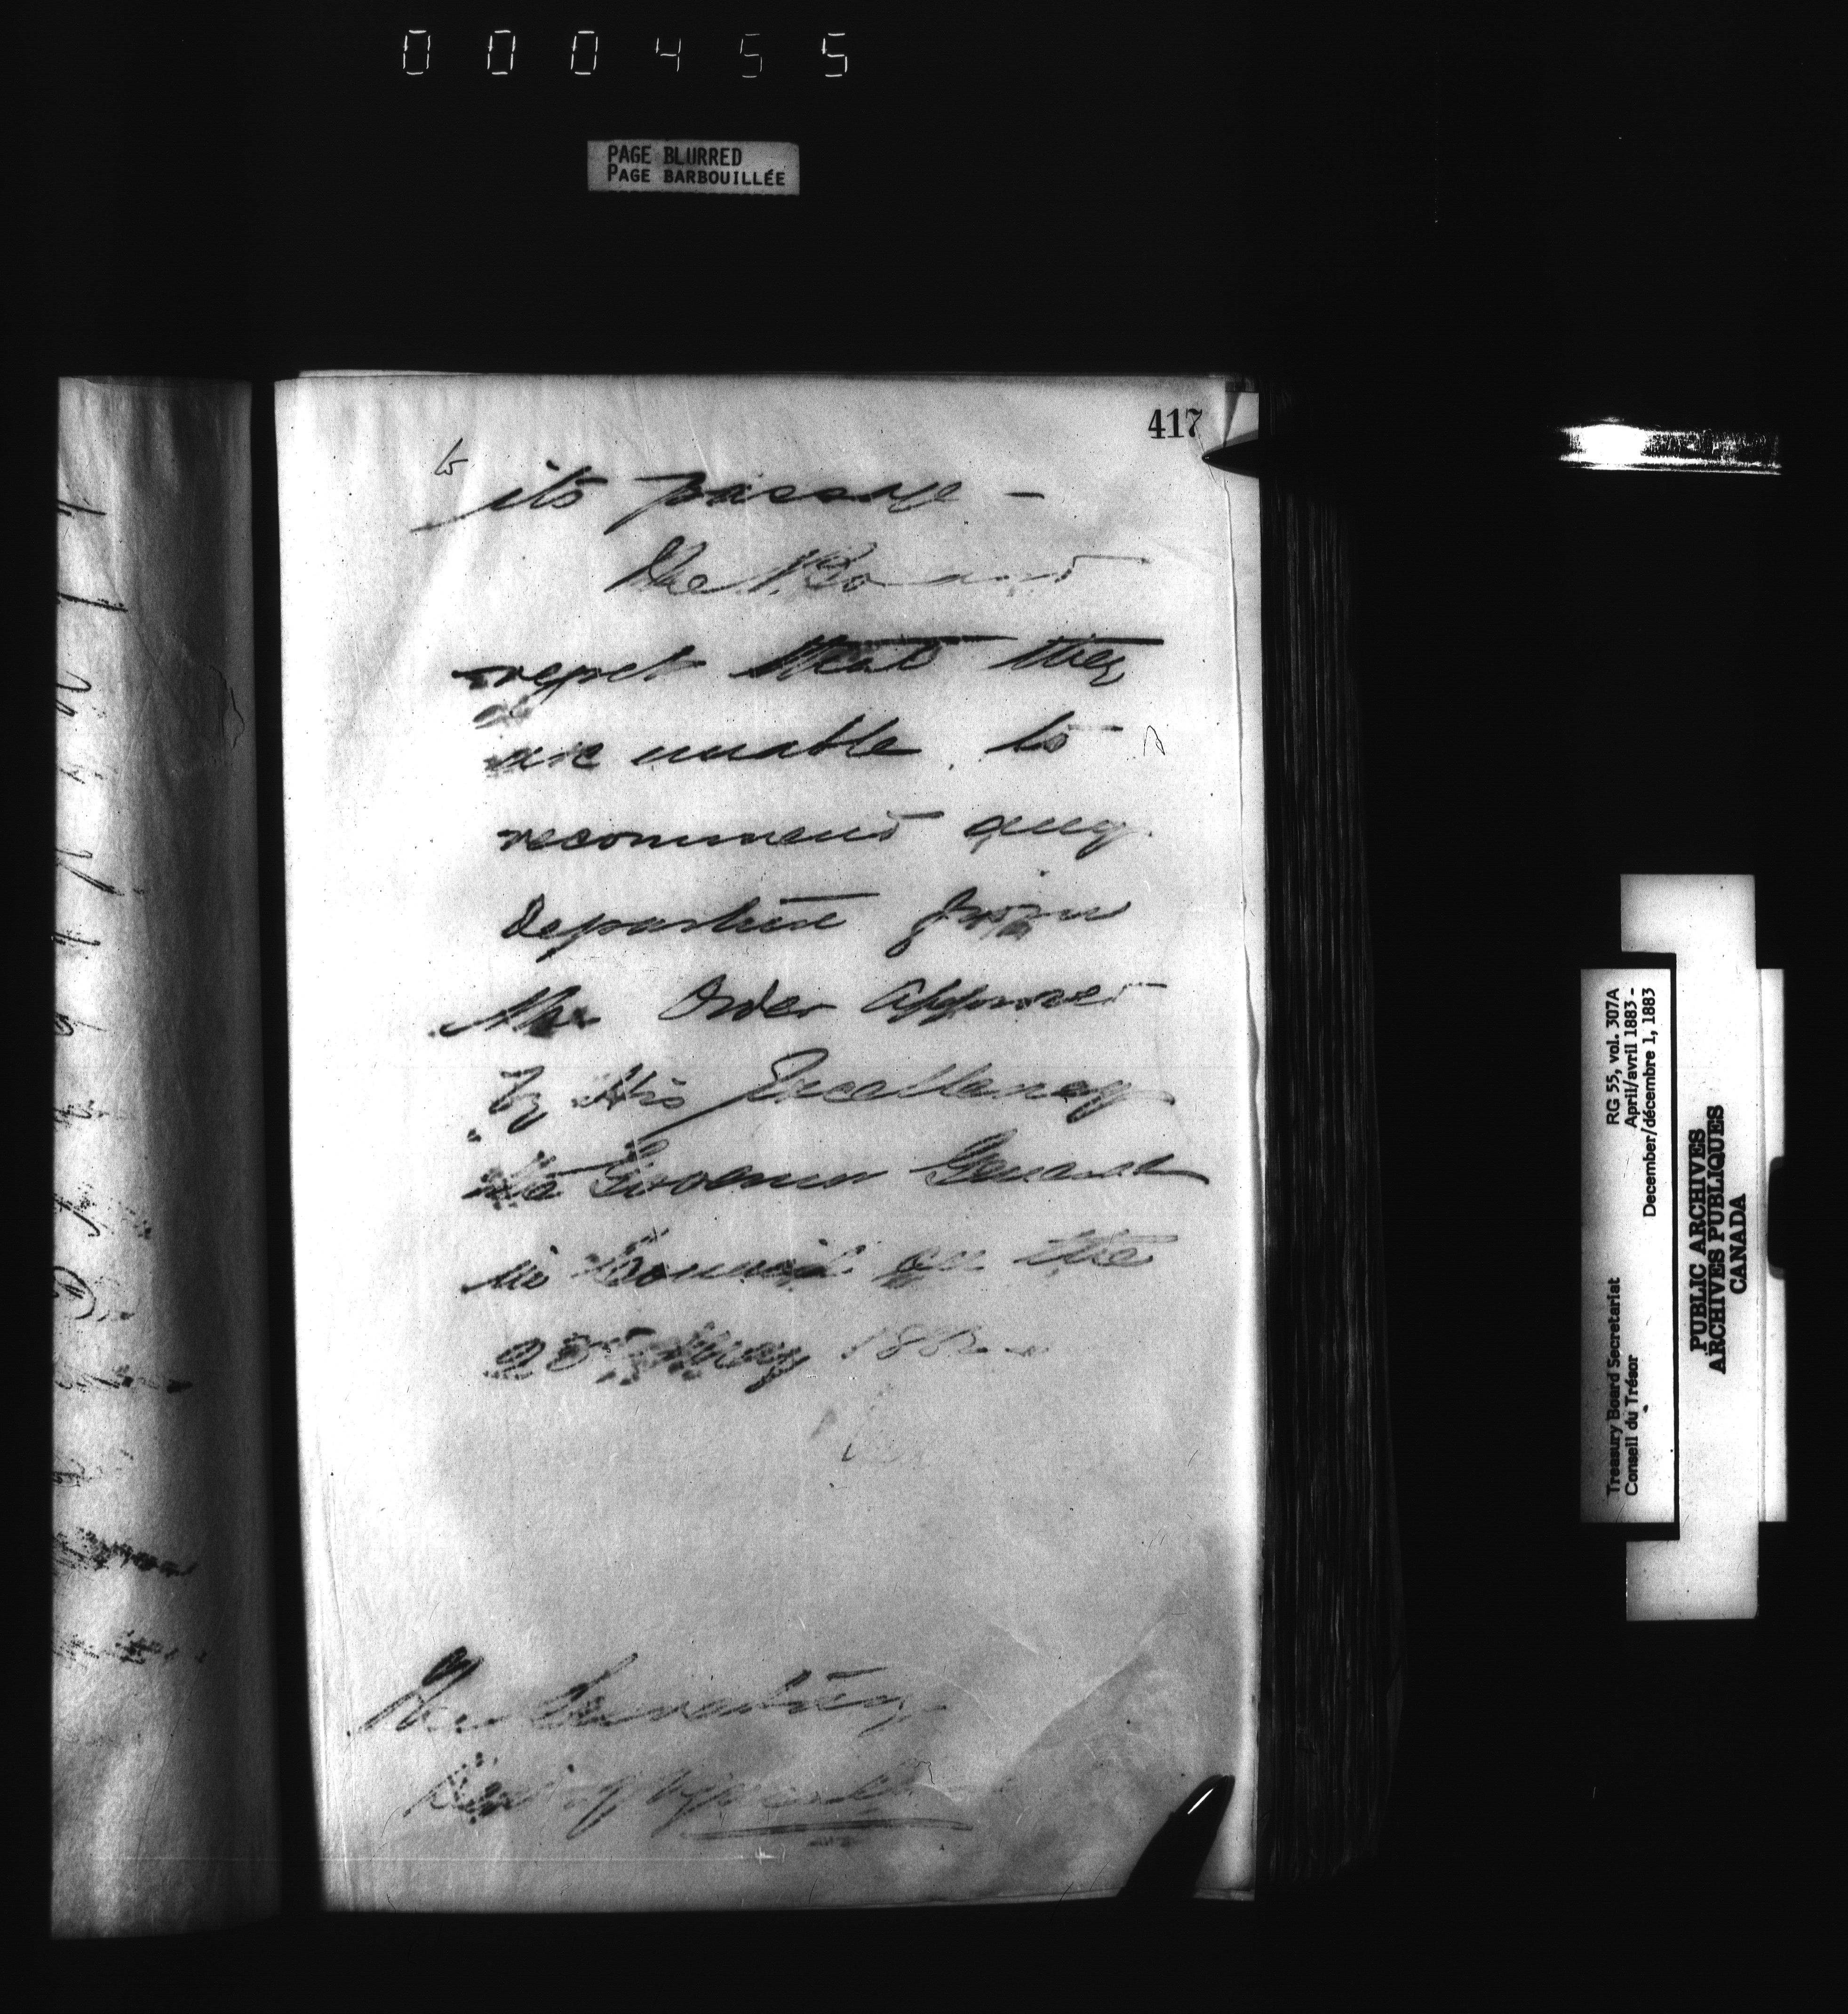 000455
PAGE BLURRED
PAGE BARBOUILLÉE
417
to
its passage –
The Board
regret that they
are unable to
recommend any
departure from
the Order approved
by His Excellency
the Governor General
in Council on the
May 188
The Secretary
Dept of
RG 55, vol. 307A
April/avril 1883 -
December/décembre 1, 1883
Treasury Board Secretariat
Conseil du Trésor
PUBLIC ARCHIVES
ARCHIVES PUBLIQUES
CANADA